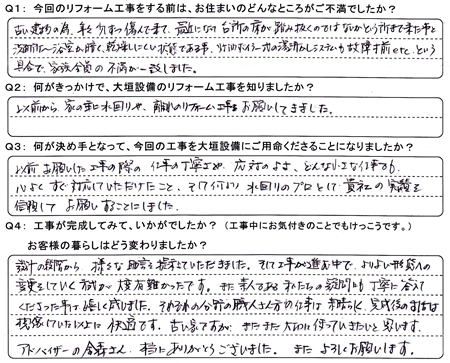 Q1：今回のリフォーム工事をする前は、お住まいのどんなところがご不満でしたか？
古い建物の為、手をつけず傷んできて、最近になり台所の床が踏み抜くのではないかと言う所まで来た事と
洗面所〜浴室が暗く、乾燥しにくい状態である事、灯油ボイラー式の湯沸しシステムも故障寸前etc.という
具合で、家族全員の不満が一致しました。
Q2：何がきっかけで、大垣設備のリフォーム工事を知りましたか？
以前から、家の主に水回りや、離れのリフォーム工事をお願いしてきました。
Q3：何が決め手となって、今回の工事を大垣設備にご用命くださることになりましたか？
以前お願いした工事の際の仕事の丁寧さや、応対のよさ、どんな小さな仕事でも
心よくすぐ対応していただけたこと、そして何より水回りのプロとして貴社の実績を
信頼してお願いすることにしました。
Q4：工事が完成してみて、いかがでしたか？（工事中にお気付きのことでもけっこうです。）
お客様の暮らしはどう変わりましたか？
設計の段階から様々な助言を提示していただきました。そして工事が進む中で、よりよい形態への
変更をしていく方が大変有難かったです。また素人であるわたしの疑問にも丁寧に答えて
くださった事は嬉しく感じました。それぞれの分野の職人さん方の仕事は素晴しく、完成後の生活は
見違えていたい以上に快適です。古い家ですが、まだまだ大切に使っていきたいと思います。
アドバイザーの さん、本当にありがとうございました。またよろしくお願いします。